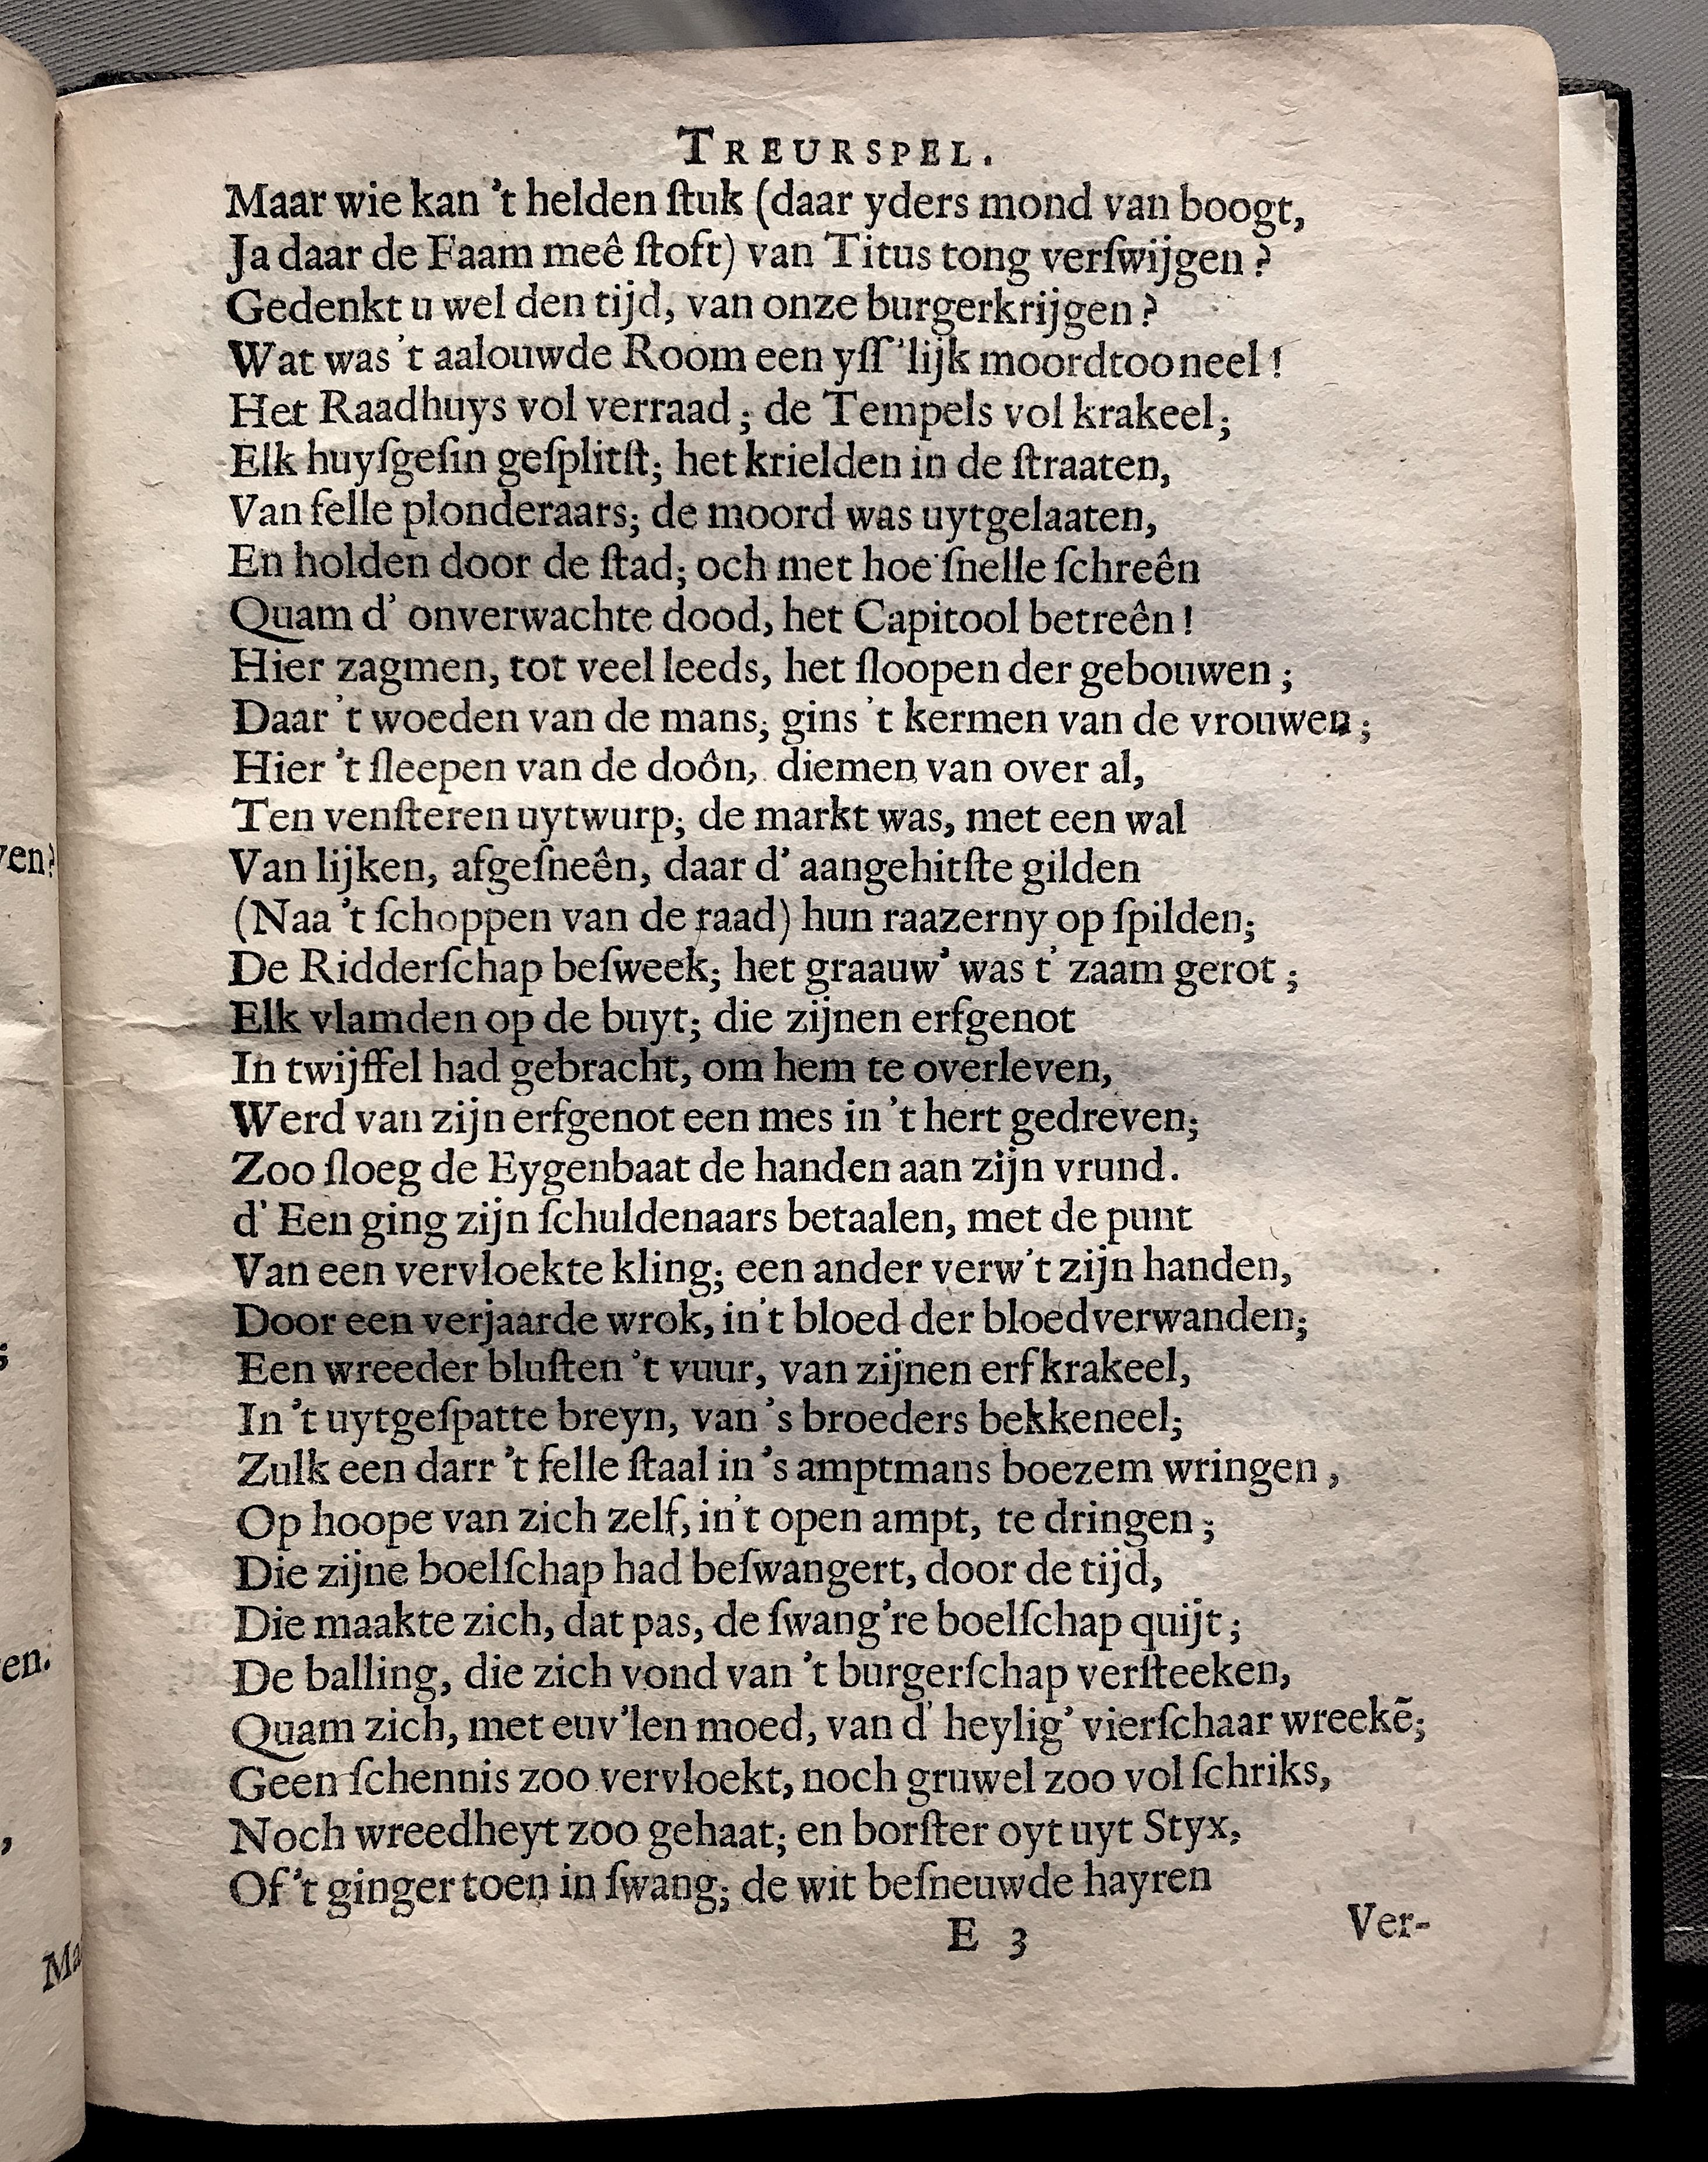 TREURSPEL.
Maar wie kan 't helden ſtuk (daar yders mond van boogt,
Ja daar de Faam meê ſtoft) van Titus tong verſwijgen?
Gedenkt u wel den tijd, van onze burgerkrijgen?
Wat was 't aalouwde Room een yſſ'lijk moordtooneel!
Het Raadhuys vol verraad; de Tempels vol krakeel;
Elk huyſgeſin geſplitſt; het krielden in de ſtraaten,
Van felle plonderaars; de moord was uytgelaaten,
En holden door de ſtad; och met hoe ſnelle ſchreên
Quam d' onverwachte dood, het Capitool betreên!
Hier zagmen, tot veel leeds, het ſloopen der gebouwen;
Daar 't woeden van de mans; gins 't kermen van de vrouwen;
Hier 't ſleepen van de doôn, diemen van over al,
Ten venſteren uytwurp; de markt was, met een wal
Van lijken, afgeſneên, daar d' aangehitſte gilden
(Naa 't ſchoppen van de raad) hun raazerny op ſpilden;
De Ridderſchap beſweek; het graauw' was t' zaam gerot;
Elk vlamden op de buyt; die zijnen erfgenot
In twijffel had gebracht, om hem te overleven,
Werd van zijn erfgenot een mes in 't hert gedreven;
Zoo ſloeg de Eygenbaat de handen aan zijn vrund.
d' Een ging zijn ſchuldenaars betaalen, met de punt
Van een vervloekte kling; een ander verw't zijn handen,
Door een verjaarde wrok, in't bloed der bloedverwanden;
Een wreeder bluſten 't vuur, van zijnen erfkrakeel,
In 't uytgeſpatte breyn, van 's broeders bekkeneel;
Zulk een darr 't felle ſtaal in 's amptmans boezem wringen,
Op hoope van zich zelf, in't open ampt, te dringen;
Die zijne boelſchap had beſwangert, door de tijd,
Die maakte zich, dat pas, de ſwang're boelſchap quijt;
De balling, die zich vond van 't burgerſchap verſteeken,
Quam zich, met euv'len moed, van d' heylig' vierſchaar wreekẽ;
Geen ſchennis zoo vervloekt, noch gruwel zoo vol ſchriks,
Noch wreedheyt zoo gehaat; en borſter oyt uyt Styx,
Of 't ginger toen in ſwang; de wit beſneuwde hayren
E 3
Ver-